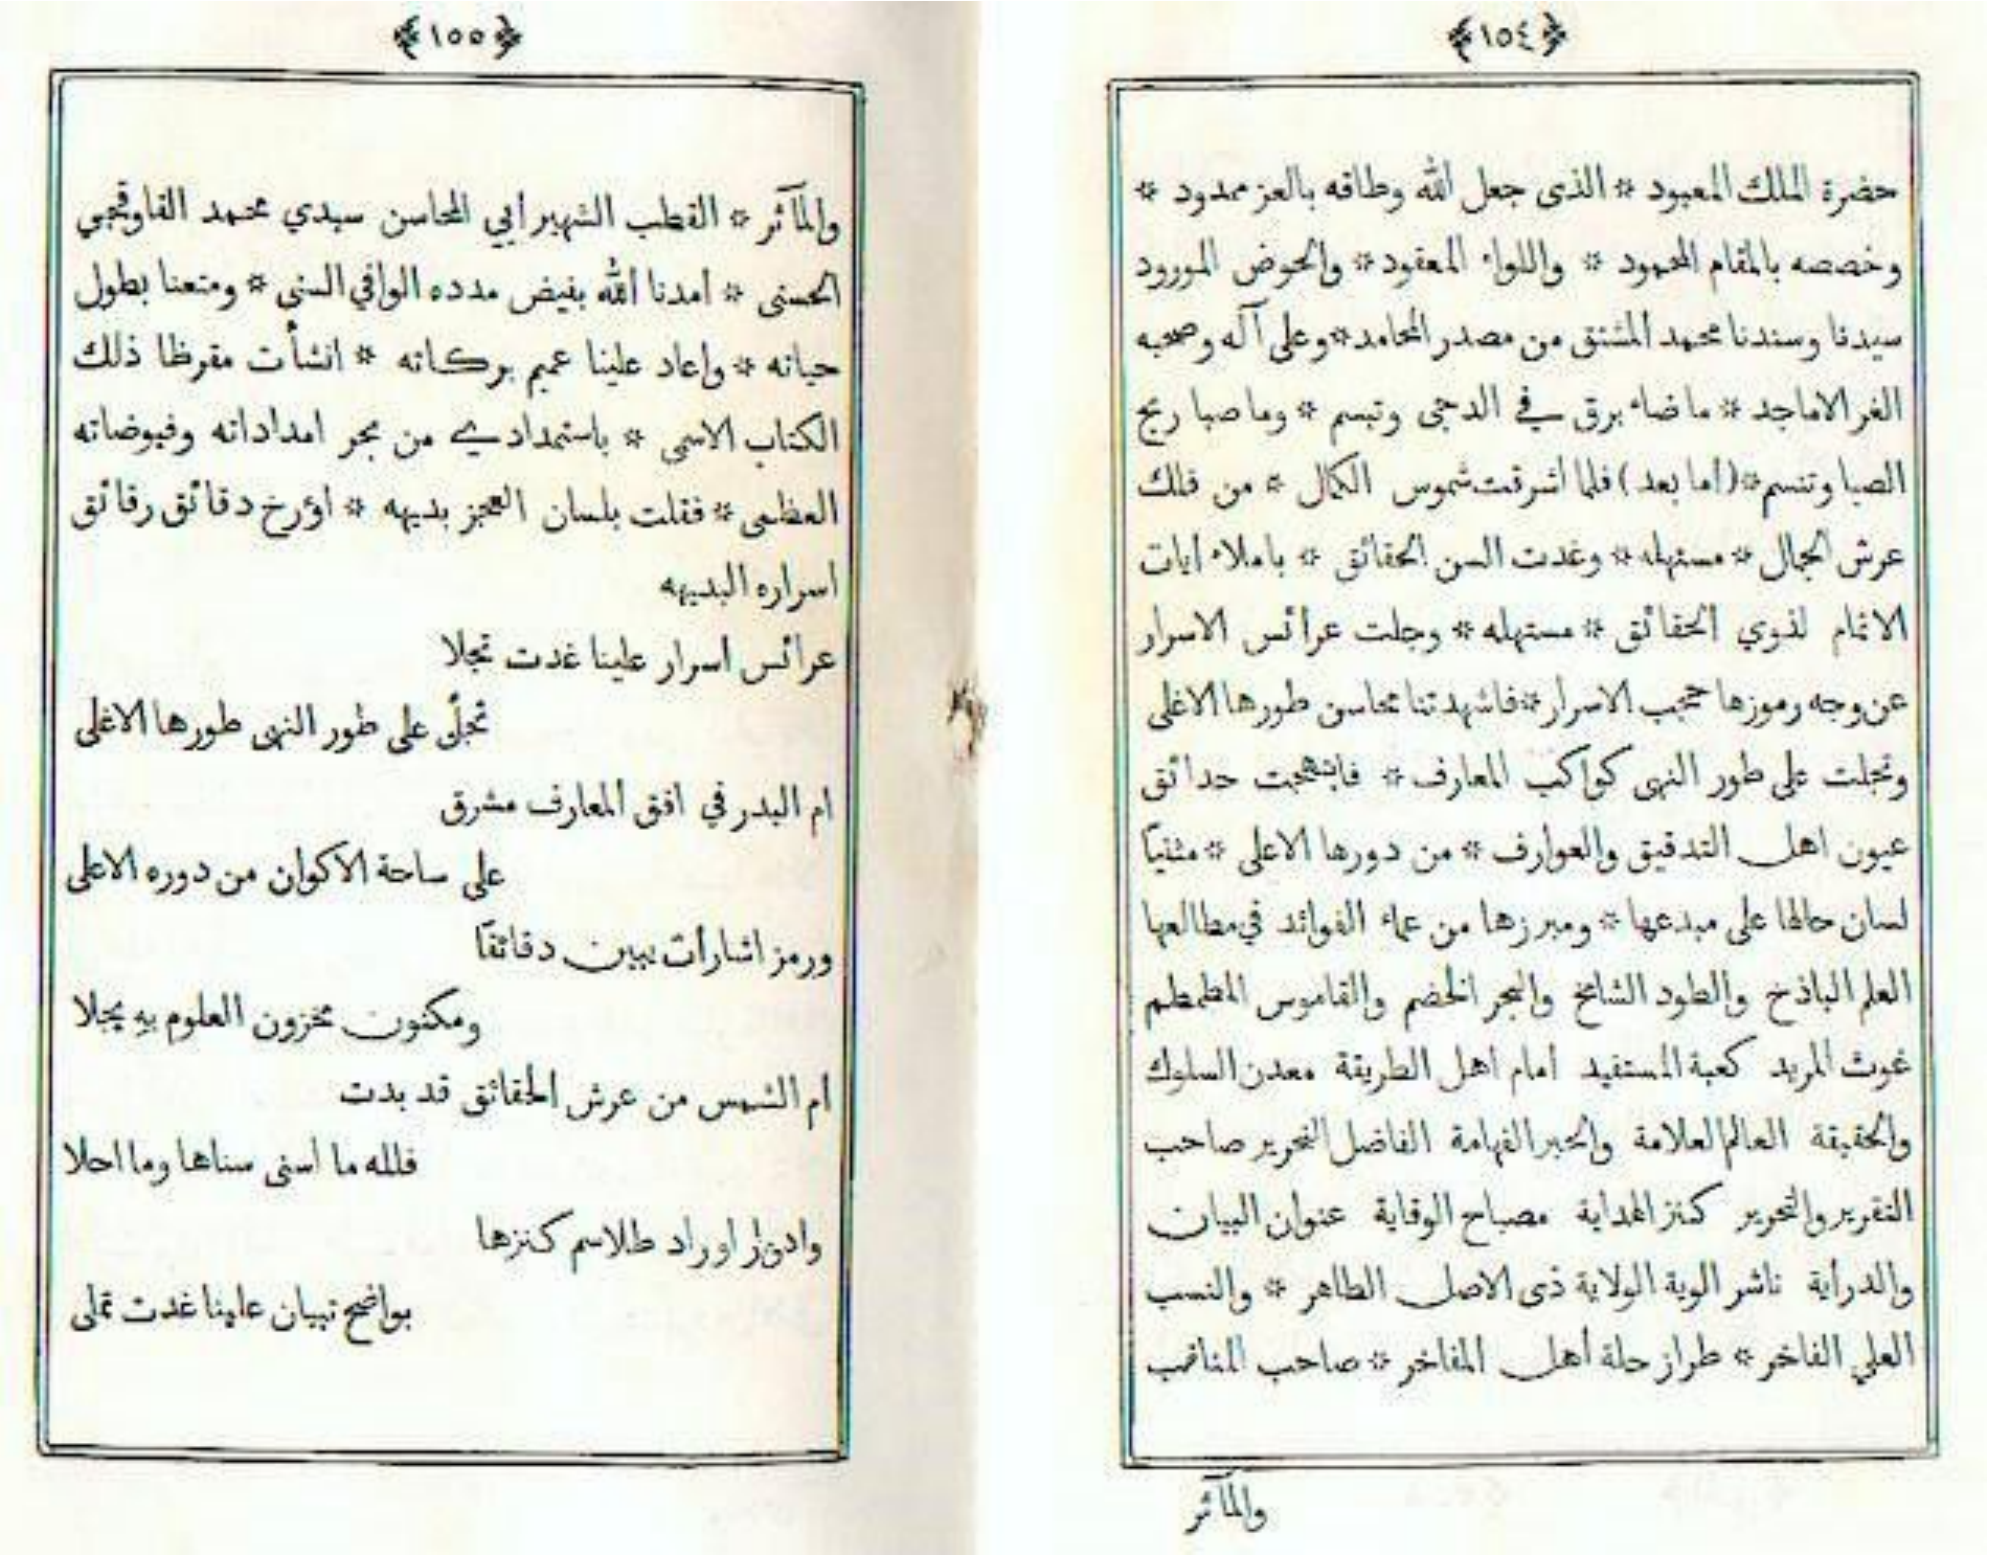 ﴿١٥٤﴾
حضرة الملك المعبود * الذى جعل الله وطاقه بالعز ممدود *
وخصصه بالمقام المحمود * واللواء المعقود * والحوض المورود
سيدنا وسندنا محمد المشتق من مصدر المحامد * وعلى آله وصحبه
الغر الاماجد * ما ضاء برق في الدجى وتبسم * وما صبا ريح
الصبا وتنسم * (اما بعد) فلما اشرقت شموس الكمال * من فلك
عرش الجمال * مستهله * وغدت السن الحقائق * باملاء ايات
الاتمام لذوي الحقائق * مستهله * وجلت عرائس الاسرار
عن وجه رموزها حجب الاسرار * فاشهدتنا محاسن طورها الاغلى
وتجلت على طور النهى كواكب المعارف * فابتهجت حدائق
عيون اهل التدقيق والعوارف * من دورها الاعلى * مثنياً
لسان حالها على مبدعها * ومبرزها من عماء الفوائد في مطالعها
العلم الباذخ والطود الشامخ والبحر الخضم والقاموس المطمطم
غوث المريد كعبة المستفيد امام اهل الطريقة معدن السلوك
والحقيقة العالم العلامة والحبر الفهامة الفاضل النحرير صاحب
التقرير والتحرير كنز الهداية مصباح الوقاية عنوان البيان
والدراية ناشر الوية الولاية ذى الاصل الطاهر * والنسب
العلي الفاخر * طراز حلة أهل المفاخر * صاحب المناقب
والمآثر
﴿١٥٥﴾
والمآثر * القطب الشهير ابي المحاسن سيدي محمد القاوقجي
الحسنى * امدنا الله بفيض مدده الوافي السنى * ومتعنا بطول
حياته * واعاد علينا عميم بركاته * انشأت مقرظا ذلك
الكتاب الاسمى * باستمدادي من بحر امداداته وفيوضاته
العظمى * فقلت بلسان العجز بديهه * اؤرخ دقائق رقائق
اسراره البديهه
عرائس اسرار علينا غدت تجلا
تجلّ على طور النهى طورها الاغلى
ام البدر في افق المعارف مشرق
على ساحة الاكوان من دوره الاعلى
ورمز اشارات يبين دقائقاً
ومكنون مخزون العلوم بهِ يجلا
ام الشمس من عرش الحقائق قد بدت
فلله ما اسنى سناها وما احلا
اوراد طلاسم كنزها
بواضح تبيان علينا غدت تملى